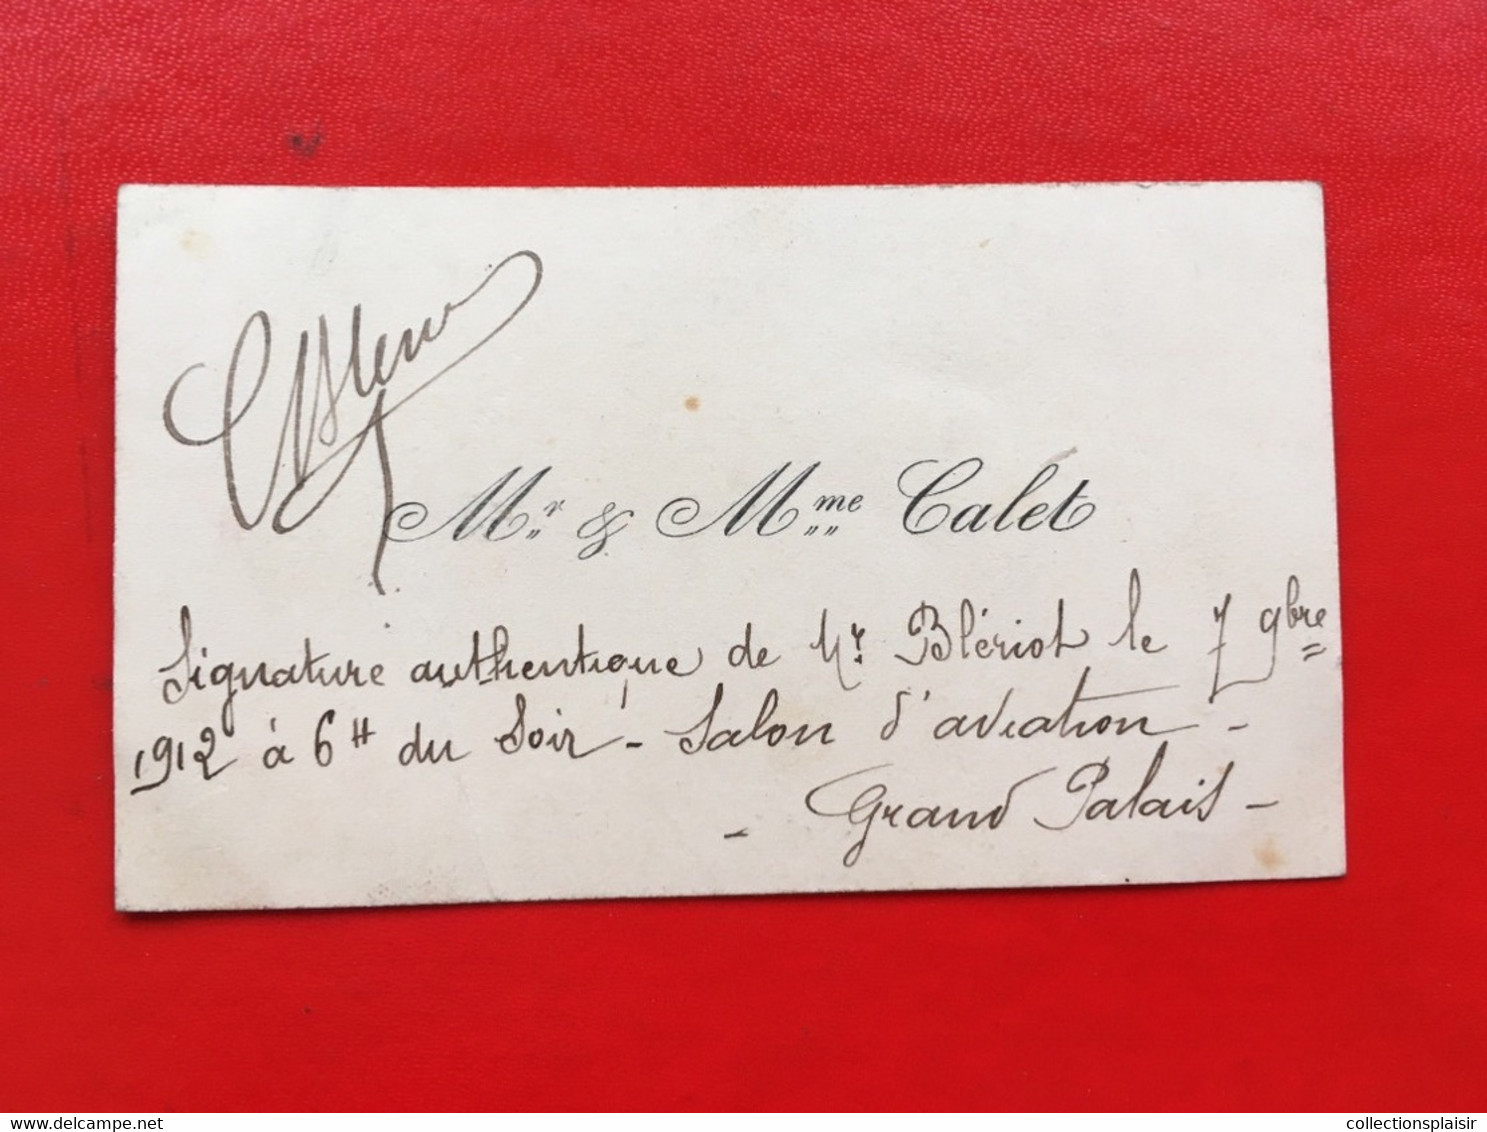 Mr & Mme Calet
Signature authentique de Mr. Blériot le 7 9bre
1912 à 6H du Soir - Salon d'aviation -
- Grand Palais -
www.delcampe.net
collectionsplaisir